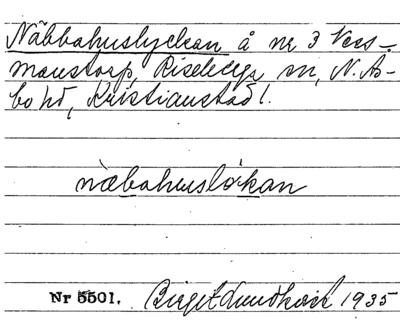 Näbbahuslyckan å nr 3 Vers-
manstorp, Riseberga sn, N. Ås-
bo hd, Kristianstad l.
næ̀bahuslỳkan
Nr 5501. Birgit Lundkvist 1935